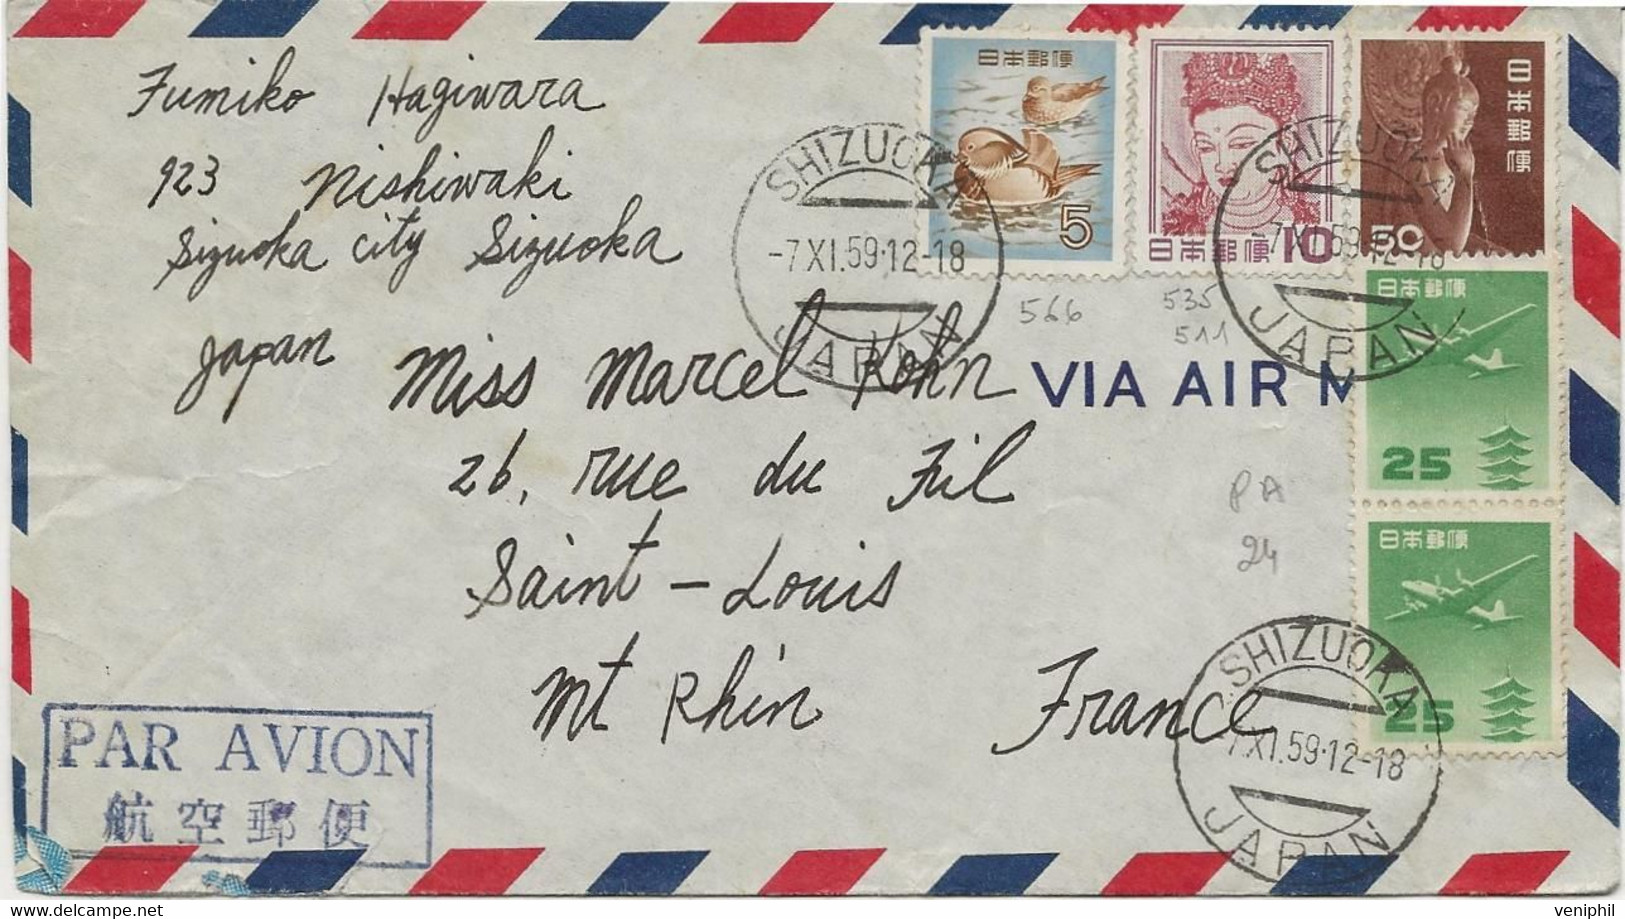 Fumiko Hagiwara
923 Nishiwaki
Sizuoka city Sizuoka
Japan
日本郵便
5
日本郵便
10
日本郵便
50
日本郵便
25
日本郵便
25
SHIZUOKA
-7.XI.59.12-18
JAPAN
SHIZUOKA
-7.XI.59.12-18
JAPAN
566
535
511
VIA AIR M
Miss Marcel Kohn
26, rue du Fil
Saint-Louis
Mt Rhin France
PA
24
SHIZUOKA
-7.XI.59.12-18
JAPAN
PAR AVION
航空郵便
veniphil